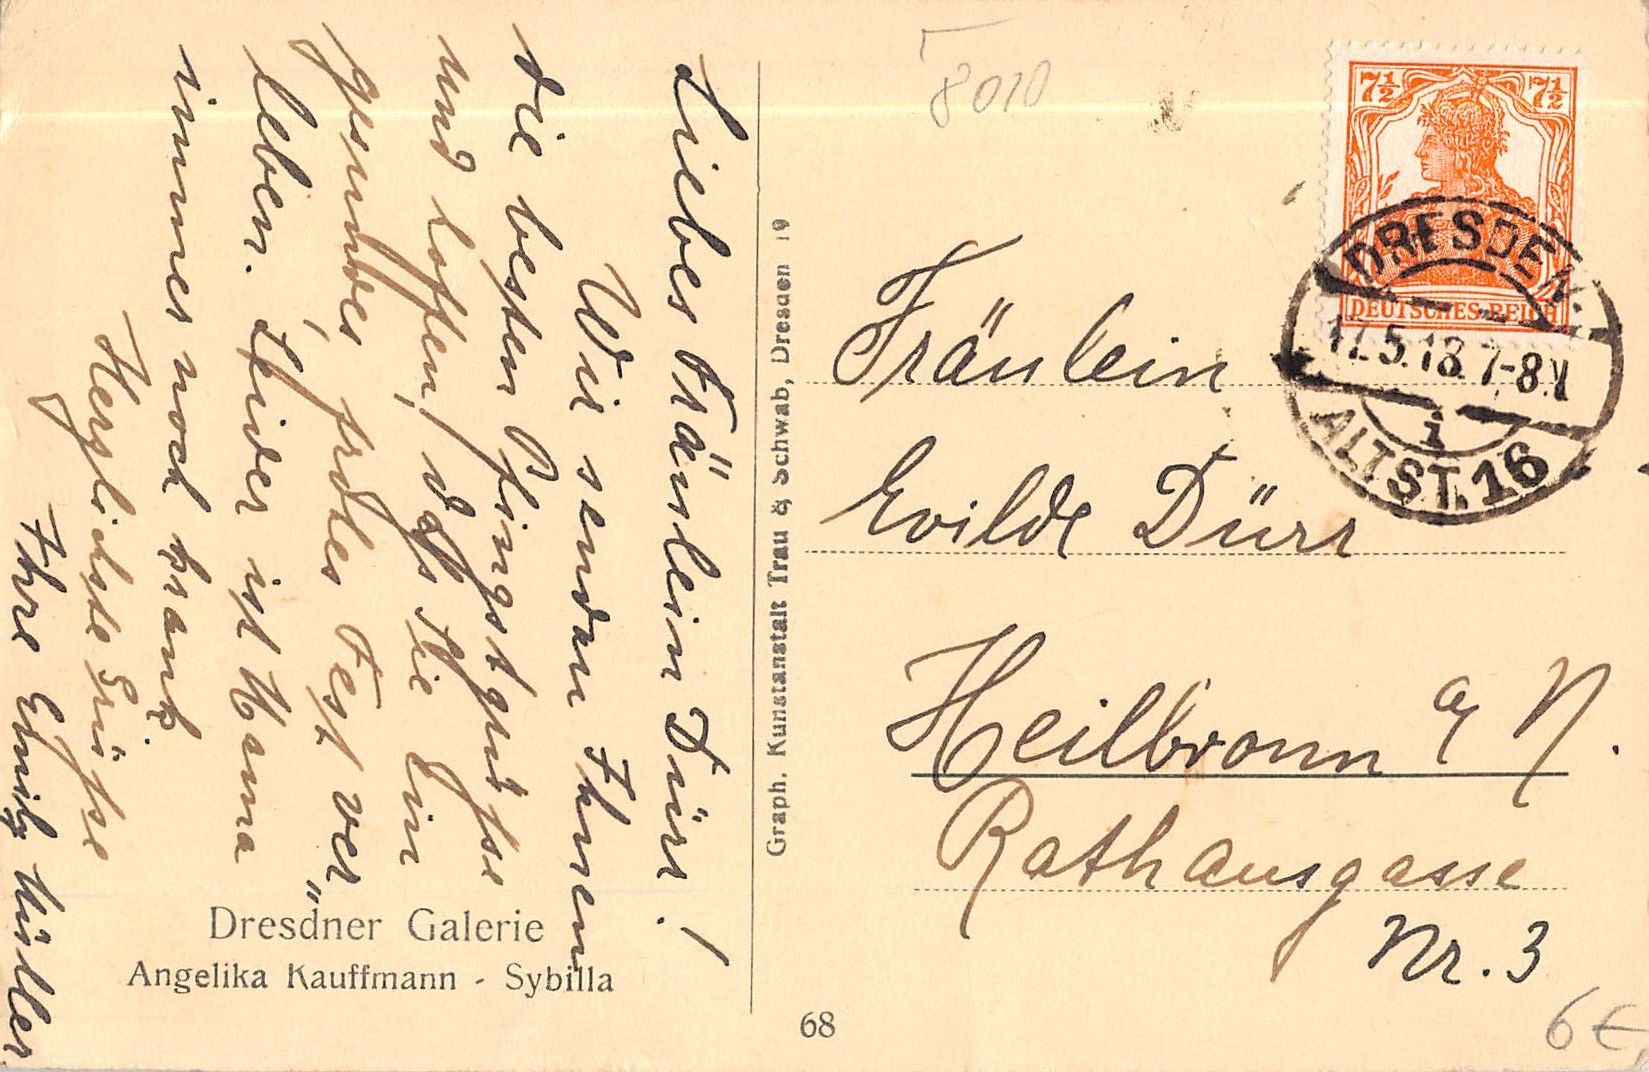 Liebes Fräulein Dürr!
Wir senden Ihnen
die besten Pfingstgrüsse
und hoffen, daß Sie ein
gesundes, frohes Fest ver„
leben. Leider ist Mama
immer noch krank.
Herzlichste Grüsse
Ihre Müller
Dresdner Galerie
Angelika Kauffmann - Sybilla
Graph. Kunstanstalt Trau & Schwab, Dresden 19
68
8010
7½ 7½
DEUTSCHES REICH
DRESDEN.
17.5.18. 7-8.V
ALTST. 16
i
Fräulein
Dürr
Heilbronn a/N.
Rathausgasse
Nr. 3
6€